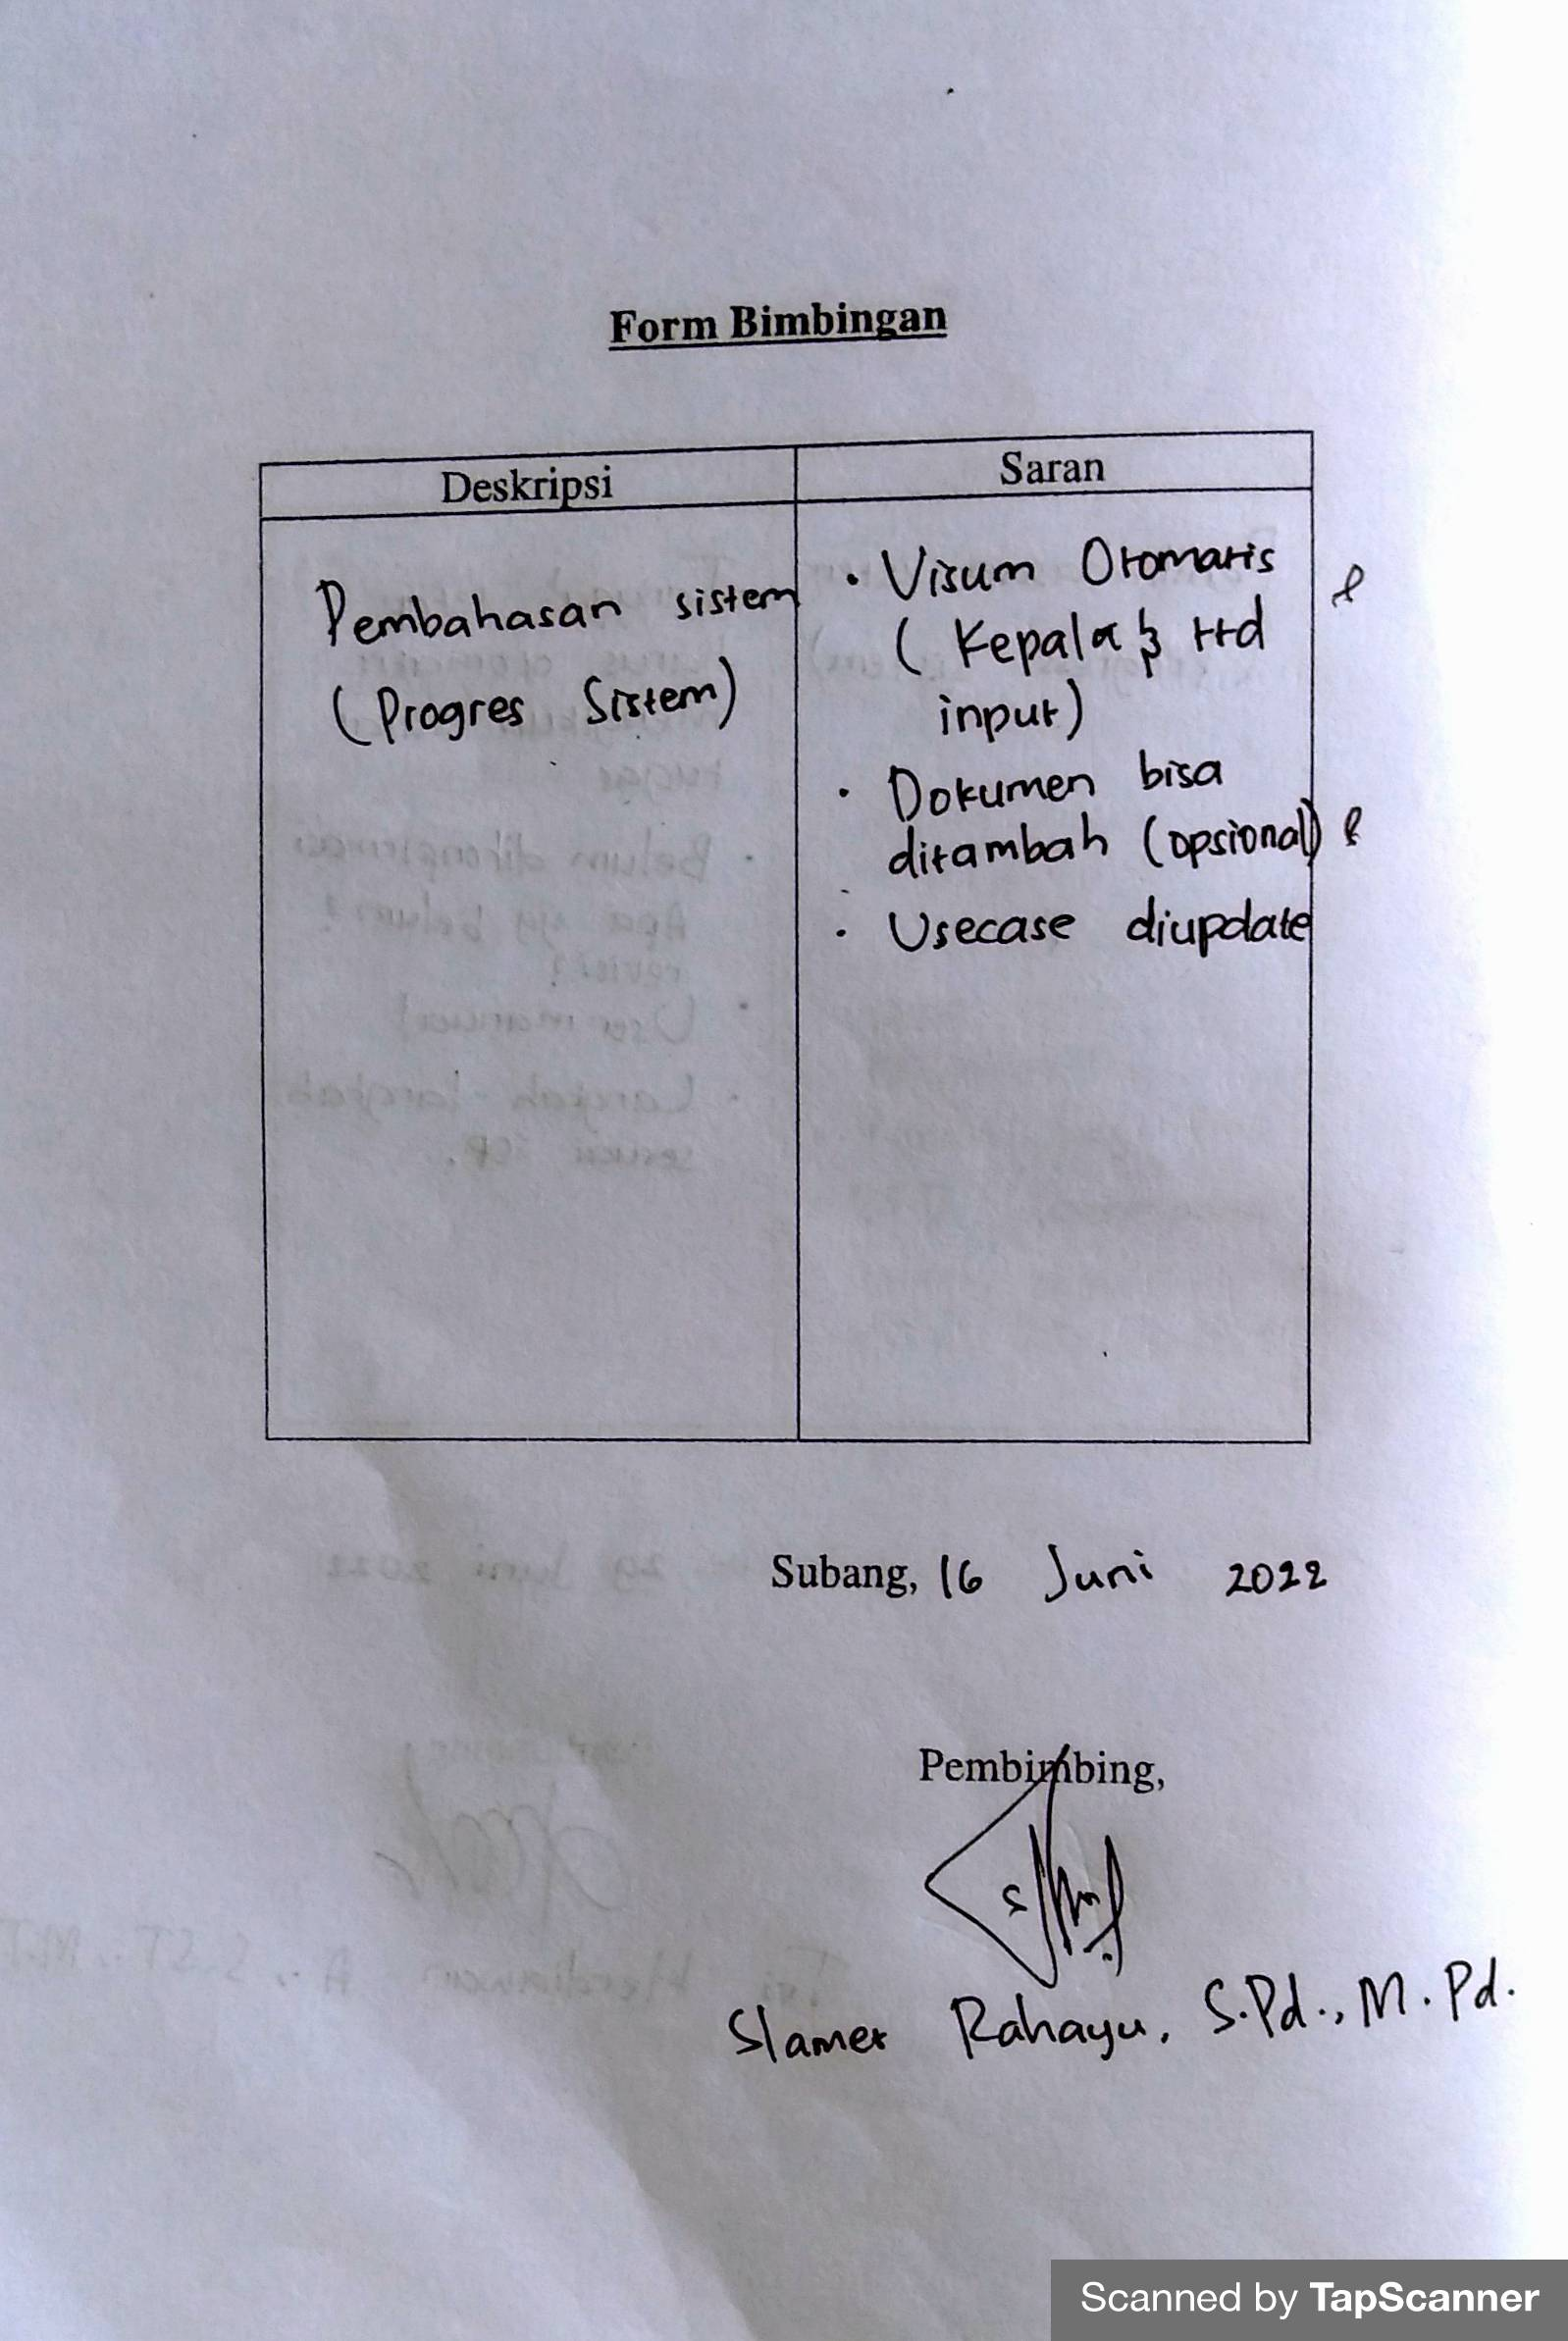 Form Bimbingan
Deskripsi
Saran
Pembahasan sistem
(Progres Sistem)
• Visum Otomatis
( Kepala & ttd
input)
• Dokumen bisa
ditambah (opsional)
• Usecase diupdate
Subang, 16 Juni 2022
Pembimbing,
Slamet Rahayu, S.Pd., M.Pd.
Scanned by TapScanner